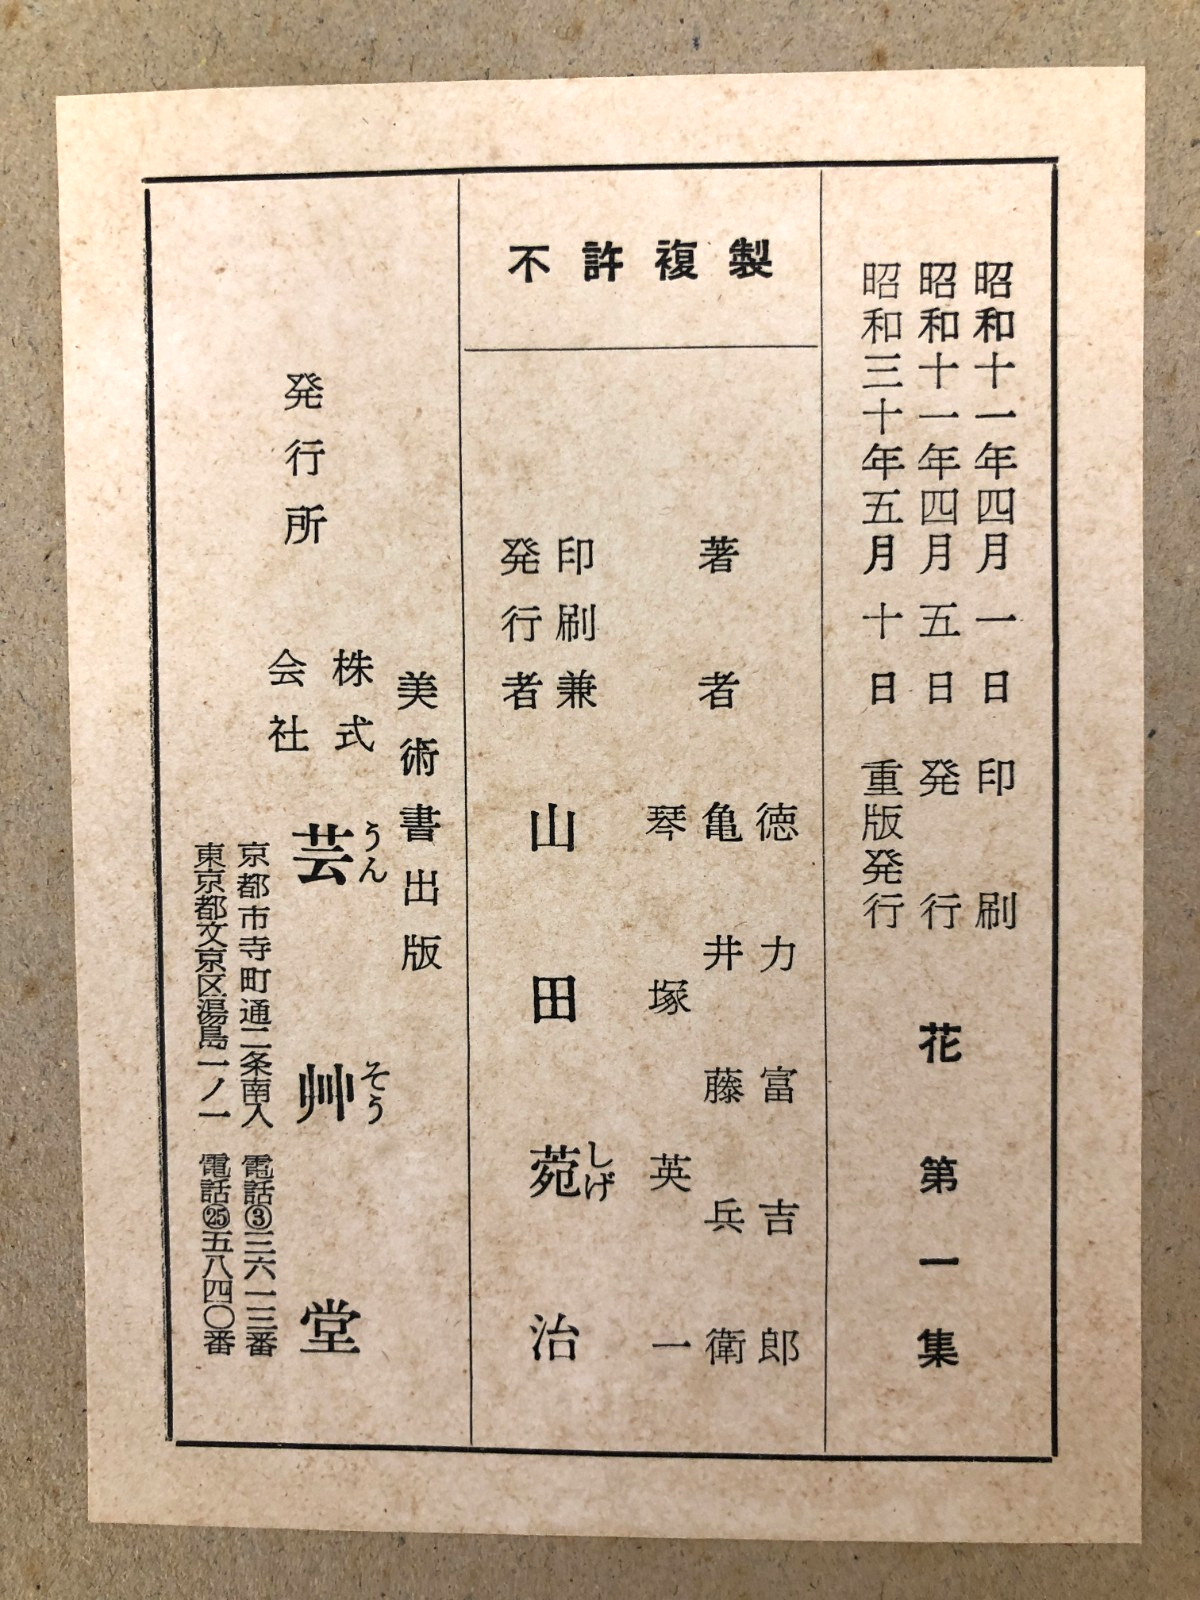 昭和十一年四月一日 印刷
昭和十一年四月五日 発行
昭和三十年五月十日 重版発行
花 第一集
不許複製
著者
徳力富吉郎
亀井藤兵衛
琴塚英一
印刷兼
発行者
山田菀治
しげ
美術書出版
発行所
株式
会社
芸艸堂
うん
そう
京都市寺町通二条南入 電話③三六一三番
東京都文京区湯島一ノ一 電話㉕五八四〇番